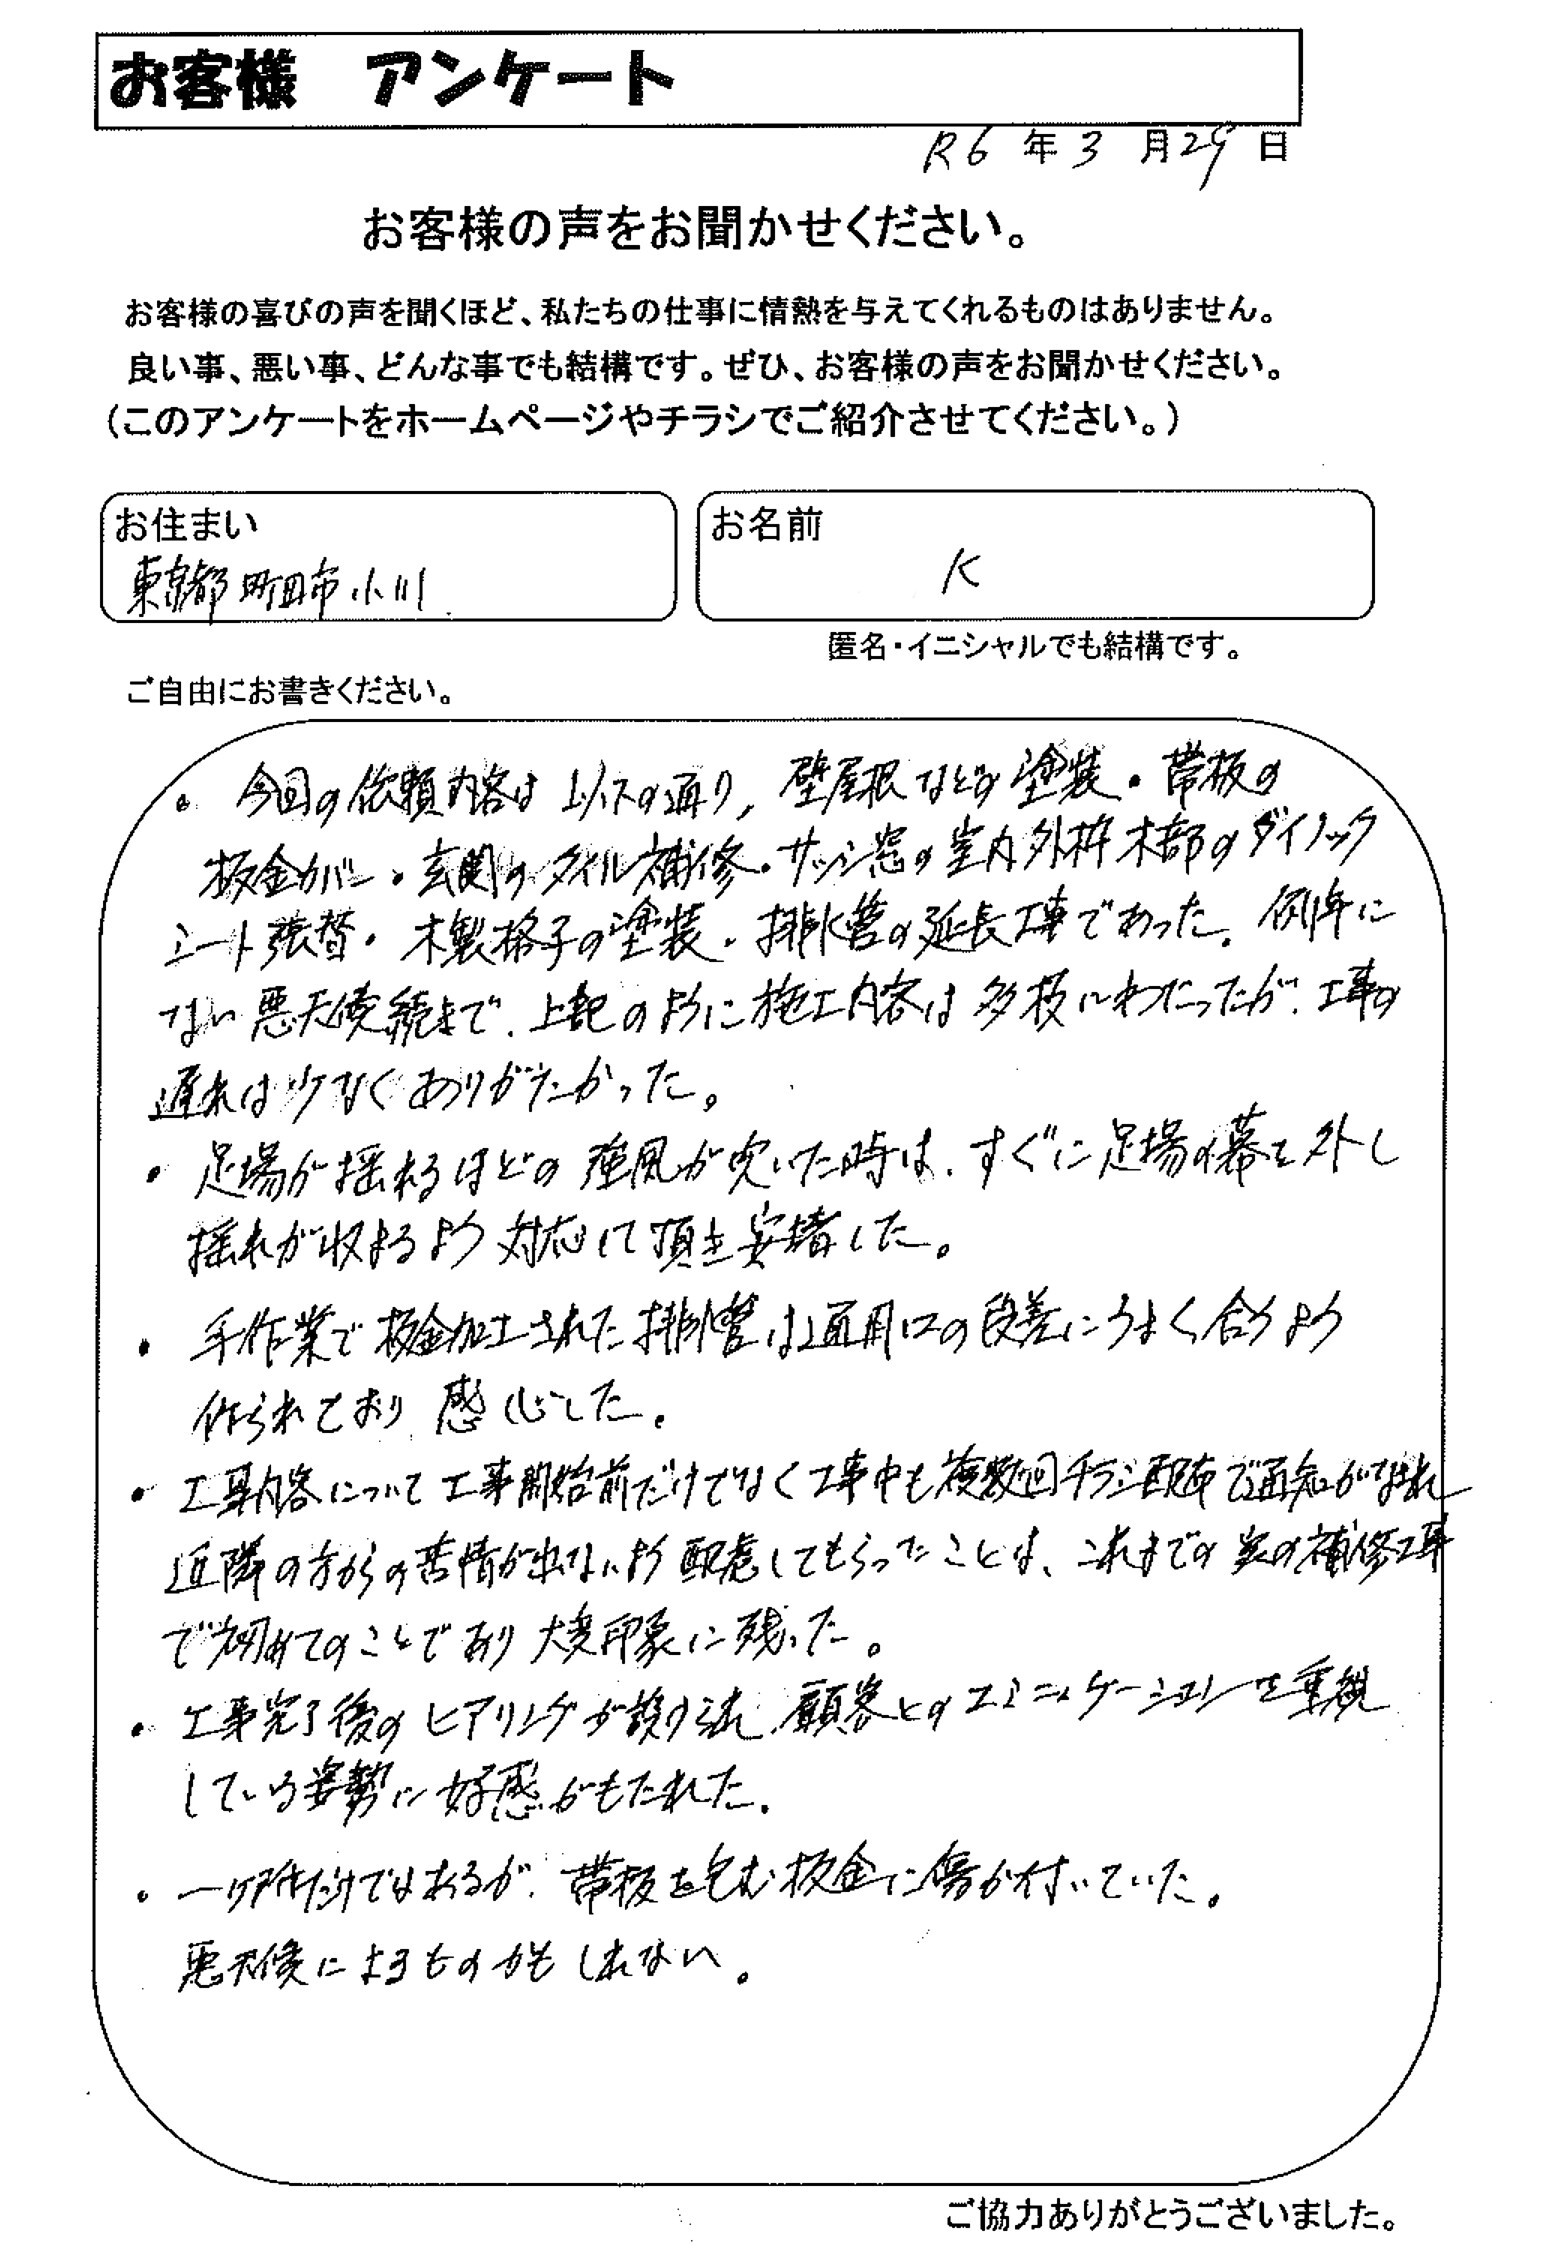 お客様 アンケート
R6 年 3 月 29 日
お客様の声をお聞かせください。
お客様の喜びの声を聞くほど、私たちの仕事に情熱を与えてくれるものはありません。
良い事、悪い事、どんな事でも結構です。ぜひ、お客様の声をお聞かせください。
(このアンケートをホームページやチラシでご紹介させてください。)
お住まい
東京都町田市小川
お名前
K
匿名・イニシャルでも結構です。
ご自由にお書きください。
・今回の依頼内容は以下の通り, 壁屋根などの塗装・帯板の
板金カバー・玄関のタイル補修・サッシ窓の室内外枠木部のダイノック
シート張替・木製格子の塗装・排水管の延長工事であった。例年に
ない悪天候続きで、上記のように施工内容は多枝にわたったが、工事の
遅れは少なくありがたかった。
・足場が揺れるほどの強風が吹いた時は、すぐに足場の幕を外し
揺れが収まるよう対応して頂き安堵した。
・手作業で板金加工された排水管は通用口の段差にうまく合うよう
作られており感心した。
・工事内容について工事開始前だけでなく工事中も複数回チラシ配布で通知がなされ
近隣の方からの苦情が出ないよう配慮してもらったことは、これまでの家の補修工事
で初めてのことであり大変印象に残った。
・工事完了後のヒアリングが設けられ、顧客とのコミュニケーションを重視
している姿勢に好感がもたれた。
・一ヶ所だけではあるが、帯板を包む板金に傷が付いていた。
悪天候によるものかもしれない。
ご協力ありがとうございました。